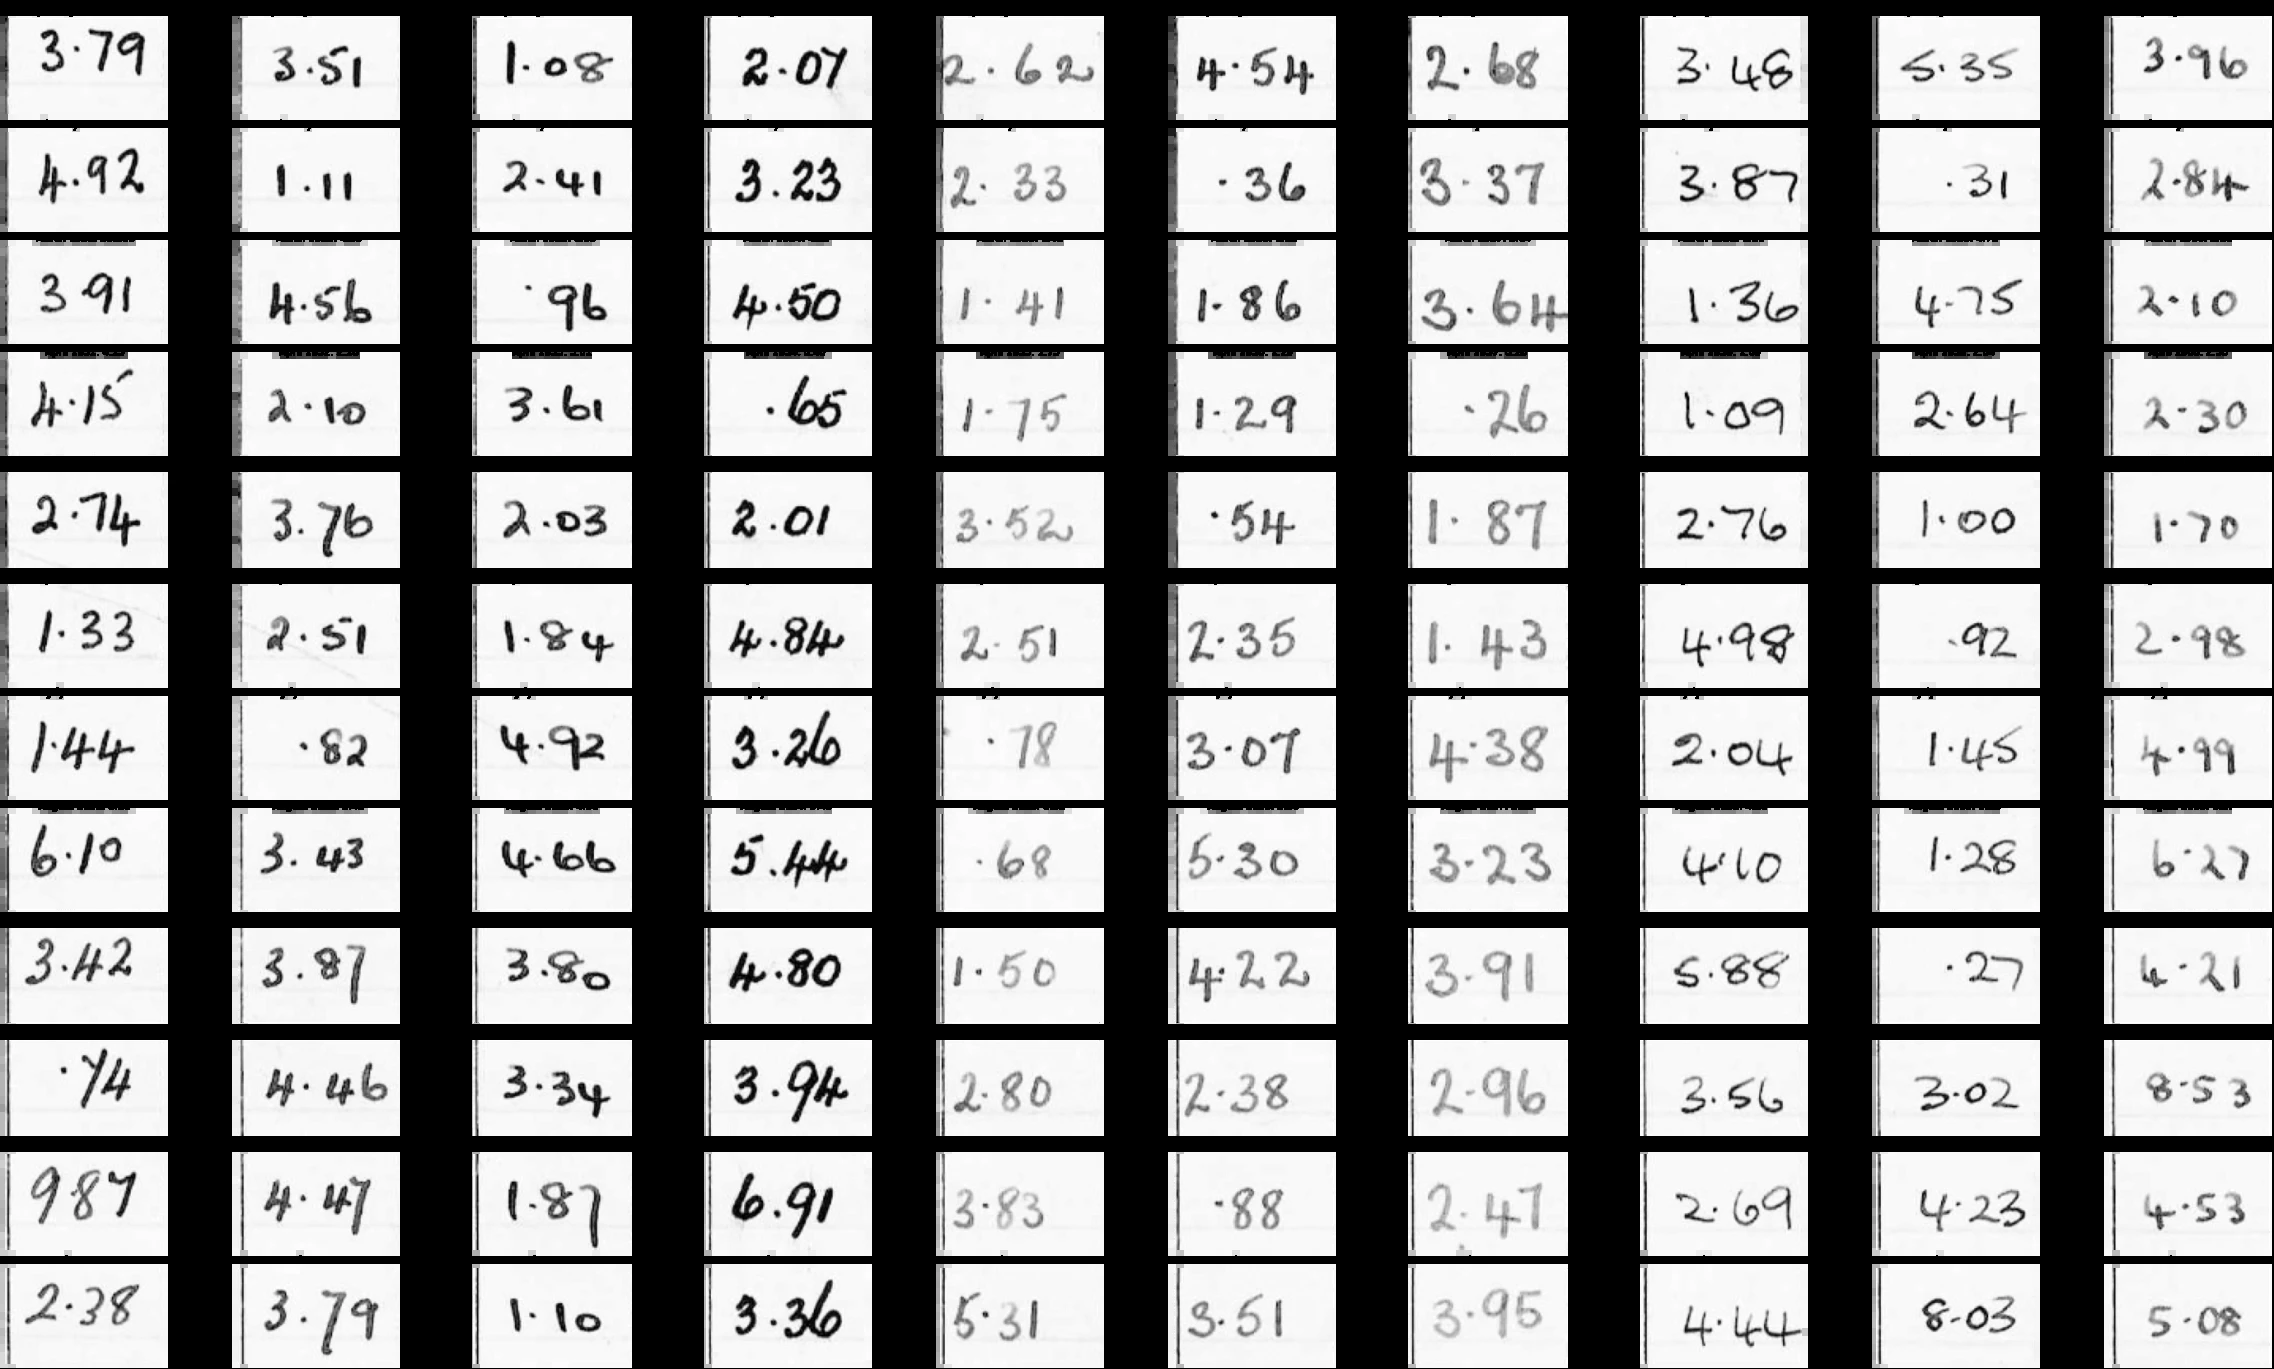 3.79 3.51 1.08 2.07 2.62 4.54 2.68 3.48 5.35 3.96
4.92 1.11 2.41 3.23 2.33 .36 3.37 3.87 .31 2.84
3.91 4.56 .96 4.50 1.41 1.86 3.64 1.36 4.75 2.10
4.15 2.10 3.61 .65 1.75 1.29 .26 1.09 2.64 2.30
2.74 3.76 2.03 2.01 3.52 .54 1.87 2.76 1.00 1.70
1.33 2.51 1.84 4.84 2.51 2.35 1.43 4.98 .92 2.98
1.44 .82 4.92 3.26 .78 3.07 4.38 2.04 1.45 4.99
6.10 3.43 4.66 5.44 .68 5.30 3.23 4.10 1.28 6.27
3.42 3.87 3.80 4.80 1.50 4.22 3.91 5.88 .27 4.21
.74 4.46 3.34 3.94 2.80 2.38 2.96 3.56 3.02 8.53
9.87 4.47 1.87 6.91 3.83 .88 2.47 2.69 4.23 4.53
2.38 3.79 1.10 3.36 5.31 3.51 3.95 4.44 8.03 5.08